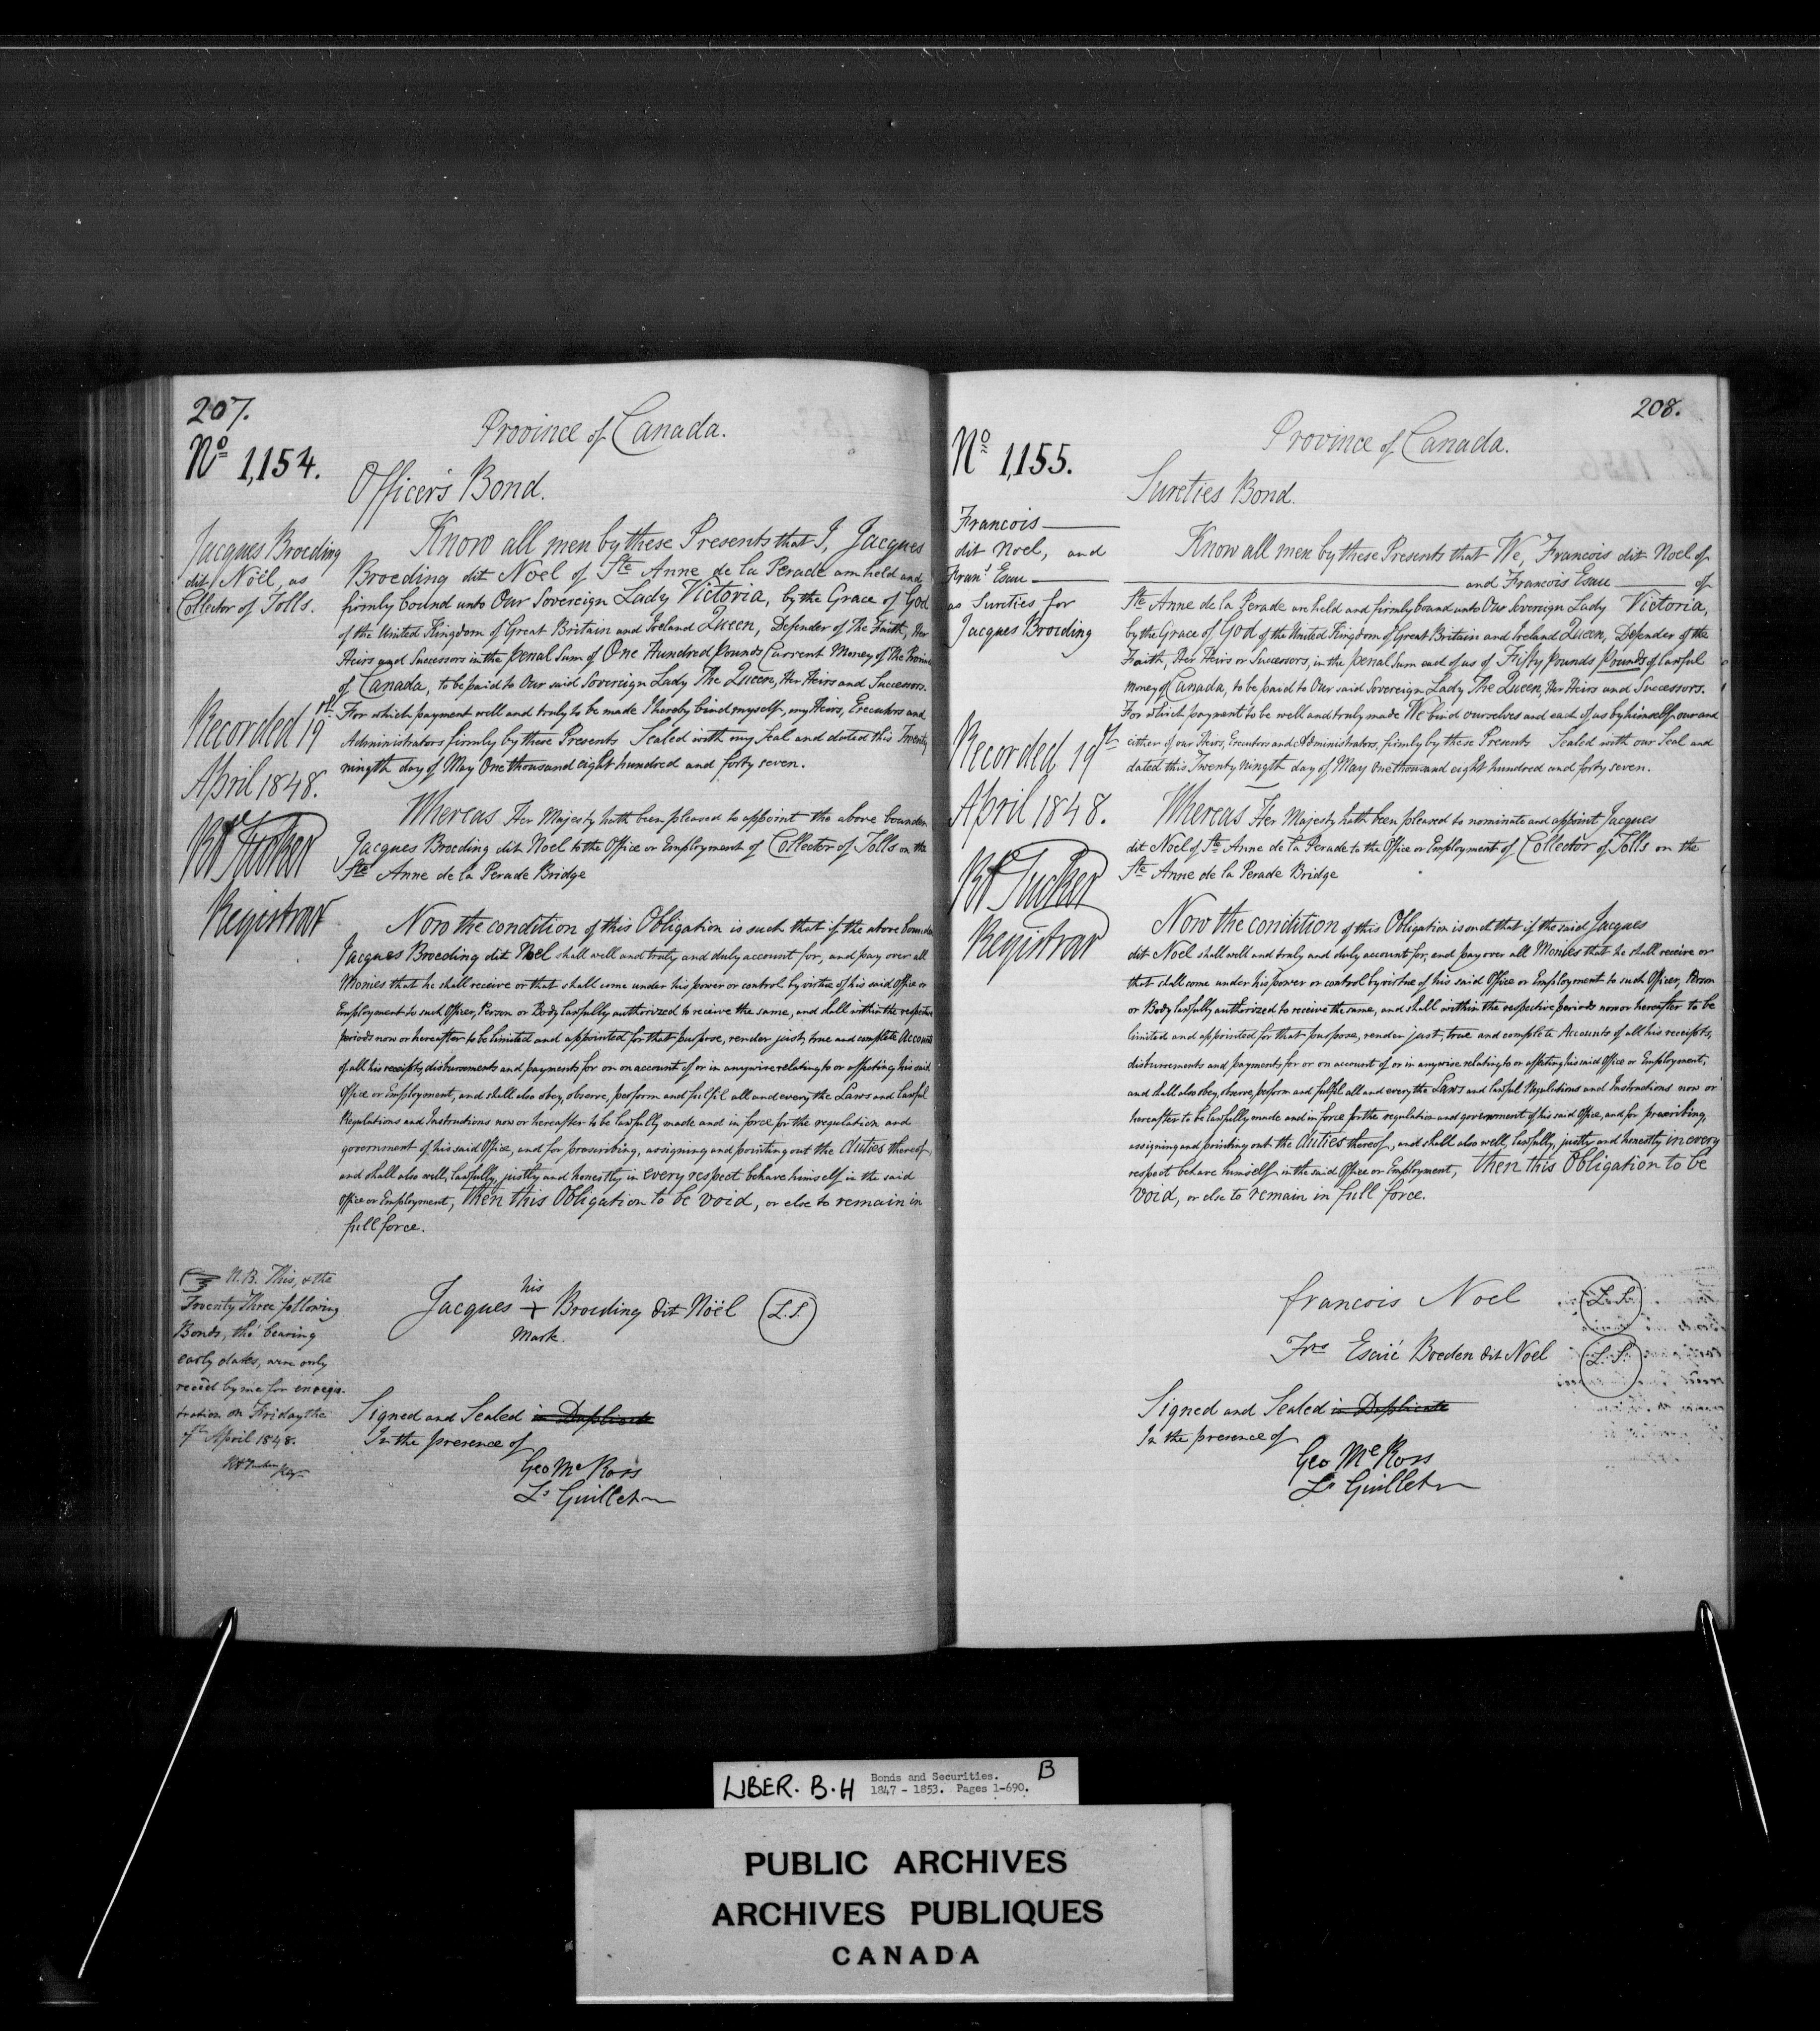 207.
Nº 1,154.
Province of Canada.
Officer's Bond.
Jacques Broeding
dit Nöël, as
Collector of Tolls.
Recorded 19th
April 1848.
RA Tucker
Registrar
Know all men by these Presents that I, Jacques
Broeding dit Noel of Ste Anne de la Perade am held and
firmly bound unto Our Sovereign Lady Victoria, by the Grace of God
of the United Kingdom of Great Britain and Ireland Queen, Defender of The Faith, Her
Heirs and Successors in the penal Sum of One Hundred Pounds Current Money of The Province
of Canada, to be paid to Our said Sovereign Lady The Queen, Her Heirs and Successors.
For which payment well and truly to be made I hereby bind myself, my Heirs, Executors and
Administrators firmly by these Presents Sealed with my Seal and dated this Twenty
ningth day of May One thousand eight hundred and forty seven.
Whereas Her Majesty hath been pleased to appoint the above bounden
Jacques Broeding dit Noel to the Office or Employment of Collector of Tolls on the
Ste Anne de la Perade Bridge
Now the condition of this Obligation is such that if the above bounden
Jacques Broeding dit Noel shall well and truly and duly account for, and pay over all
Monies that he shall receive or that shall come under his power or control by virtue of his said Office or
Employment to such Officer, Person or Body lawfully authorized to receive the same, and shall within the respective
periods now or hereafter to be limited and appointed for that purpose, render just, true and complete Accounts
of all his receipts, disbursements and payments for or on account of or in anywise relating to or affecting his said
Office or Employment, and shall also obey, observe, perform and fulfil all and every the Laws and lawful
Regulations and Instructions now or hereafter to be lawfully made and in force for the regulation and
government of his said Office, and for prescribing, assigning and pointing out the duties thereof,
and shall also well, lawfully, justly and honestly in every respect behave himself in the said
Office or Employment, then this Obligation to be void, or else to remain in
full force.
N.B. This, & the
Twenty Three following
Bonds, tho' bearing
early dates, were only
reced by me for enregis-
tration on Friday the
7th April 1848.
RA Tucker Regr
his
Jacques + Broeding dit Nöël (L.S.)
Mark.
Signed and Sealed in Duplicate
In the presence of
Geo Mc Ross
Ls Guillet
208.
Nº 1,155.
Province of Canada.
Sureties Bond.
Francois
dit Noel, and
Frans Esau
as Sureties for
Jacques Broeding
Recorded 19th
April 1848.
RA Tucker
Registrar
Know all men by these Presents that We, Francois dit Noel of
and Francois Esau of
Ste Anne de la Perade are held and firmly bound unto Our Sovereign Lady Victoria,
by the Grace of God of the United Kingdom of Great Britain and Ireland Queen, Defender of the
Faith, Her Heirs or Successors, in the penal Sum each of us of Fifty Pounds Pounds of lawful
money of Canada, to be paid to Our said Sovereign Lady The Queen, Her Heirs and Successors.
For which payment to be well and truly made We bind ourselves and each of us by himself our and
either of our Heirs, Executors and Administrators, firmly by these Presents Sealed with our Seal and
dated this Twenty ningth day of May One thousand eight hundred and forty seven.
Whereas Her Majesty hath been pleased to nominate and appoint Jacques
dit Noel of Ste Anne de la Perade to the Office or Employment of Collector of Tolls on the
Ste Anne de la Perade Bridge
Now the condition of this Obligation is such that if the said Jacques
dit Noel shall well and truly and duly account for, and pay over all Monies that he shall receive or
that shall come under his power or control by virtue of his said Office or Employment to such Officer, Person
or Body lawfully authorized to receive the same, and shall within the respective periods now or hereafter to be
limited and appointed for that purpose, render just, true and complete Accounts of all his receipts,
disbursements and payments for or on account of or in anywise relating to or affecting his said Office or Employment,
and shall also obey, observe, perform and fulfil all and every the Laws and lawful Regulations and Instructions now or
hereafter to be lawfully made and in force for the regulation and government of his said Office, and for prescribing,
assigning and pointing out the duties thereof, and shall also well, lawfully, justly and honestly in every
respect behave himself in the said Office or Employment, then this Obligation to be
void, or else to remain in full force.
francois Noel (L.S.)
Frs Esaïe Broeden dit Noel (L.S.)
Signed and Sealed in Duplicate
In the presence of
Geo Mc Ross
Ls Guillet
LIBER. B.H Bonds and Securities. B
1847 - 1853. Pages 1-690.
PUBLIC ARCHIVES
ARCHIVES PUBLIQUES
CANADA